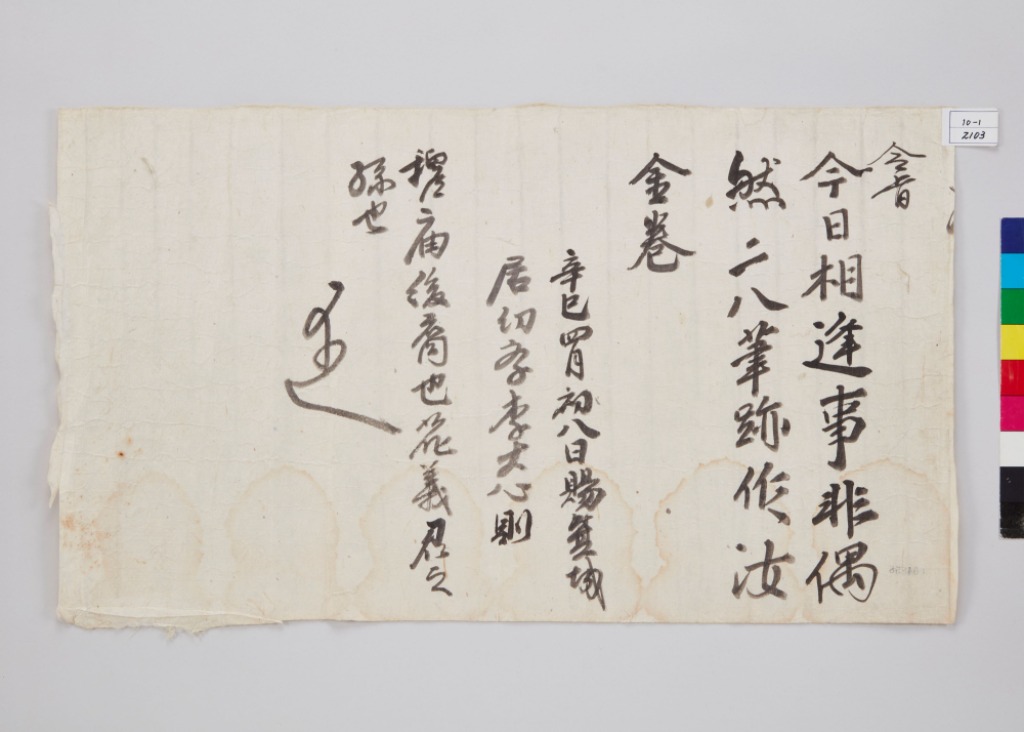 令旨
今日相逢事非偶
然二八筆跡作汝
金卷
辛巳四月初八日賜箕城
居幼孝李大心則
穆庙後裔也花義君之
孫也
10-1
2103